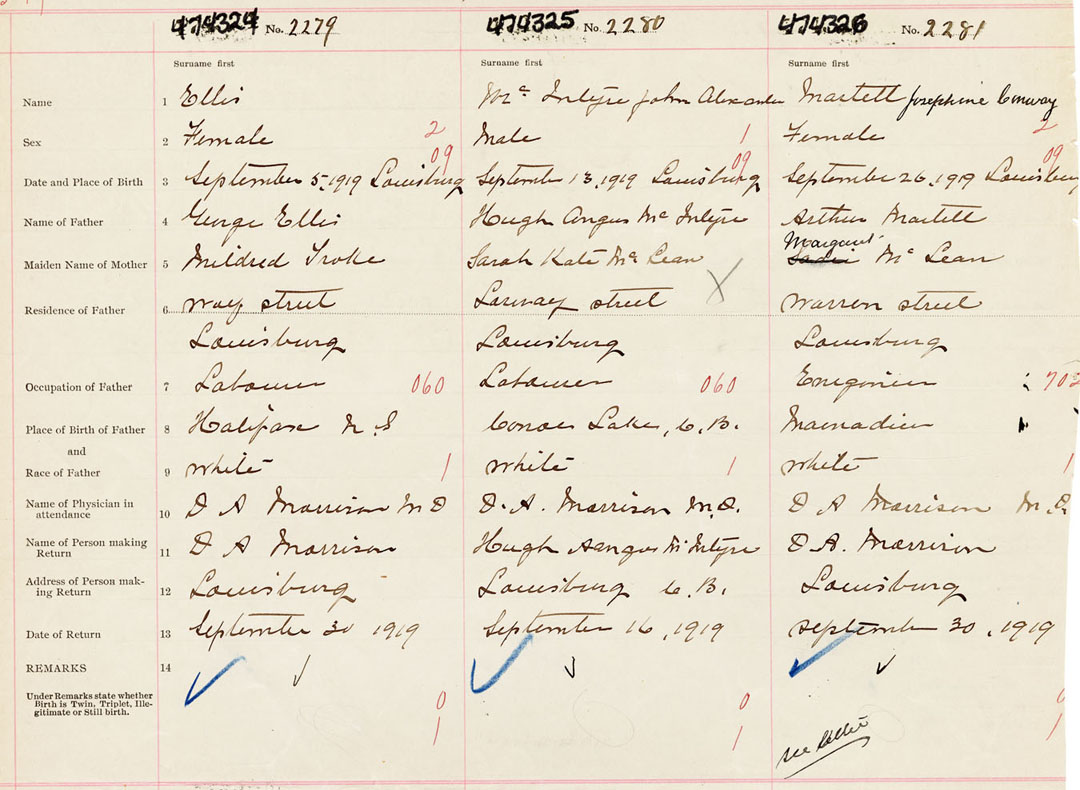 474324 No. 2279 474325 No. 2280 474326 No. 2281
Surname first Surname first Surname first
Name 1 Ellis Mc Intyre John Alexander Martell Josephine Conway
Sex 2 Female 2 Male 1 Female 2
09 09 09
Date and Place of Birth 3 September 5, 1919 Louisburg September 13, 1919 Louisburg September 26, 1919 Louisburg
Name of Father 4 George Ellis Hugh Angus Mc Intyre Arthur Martell
Margaret
Maiden Name of Mother 5 Mildred Troke Sarah Kate Mc Lean X Sadie Mc Lean
Residence of Father 6 Way street Street Warren street
Louisburg Louisburg Louisburg
Occupation of Father 7 Labourer 060 Labourer 060
Place of Birth of Father 8 Halifax N S Lake, C.B. Mainadieu
and
Race of Father 9 White 1 White 1 White 1
Name of Physician in
attendance 10 D A Morrison M D D. A. Morrison M.D. D A Morrison M.D.
Name of Person making
Return 11 D A Morrison Hugh Aengus Mc Intyre D A. Morrison
Address of Person mak-
ing Return 12 Louisburg Louisburg C.B. Louisburg
Date of Return 13 September 30 1919 September 16, 1919 September 30, 1919
REMARKS 14
Under Remarks state whether
Birth is Twin, Triplet, Ille-
gitimate or Still birth.
0 0 0
1 1 1
see letter